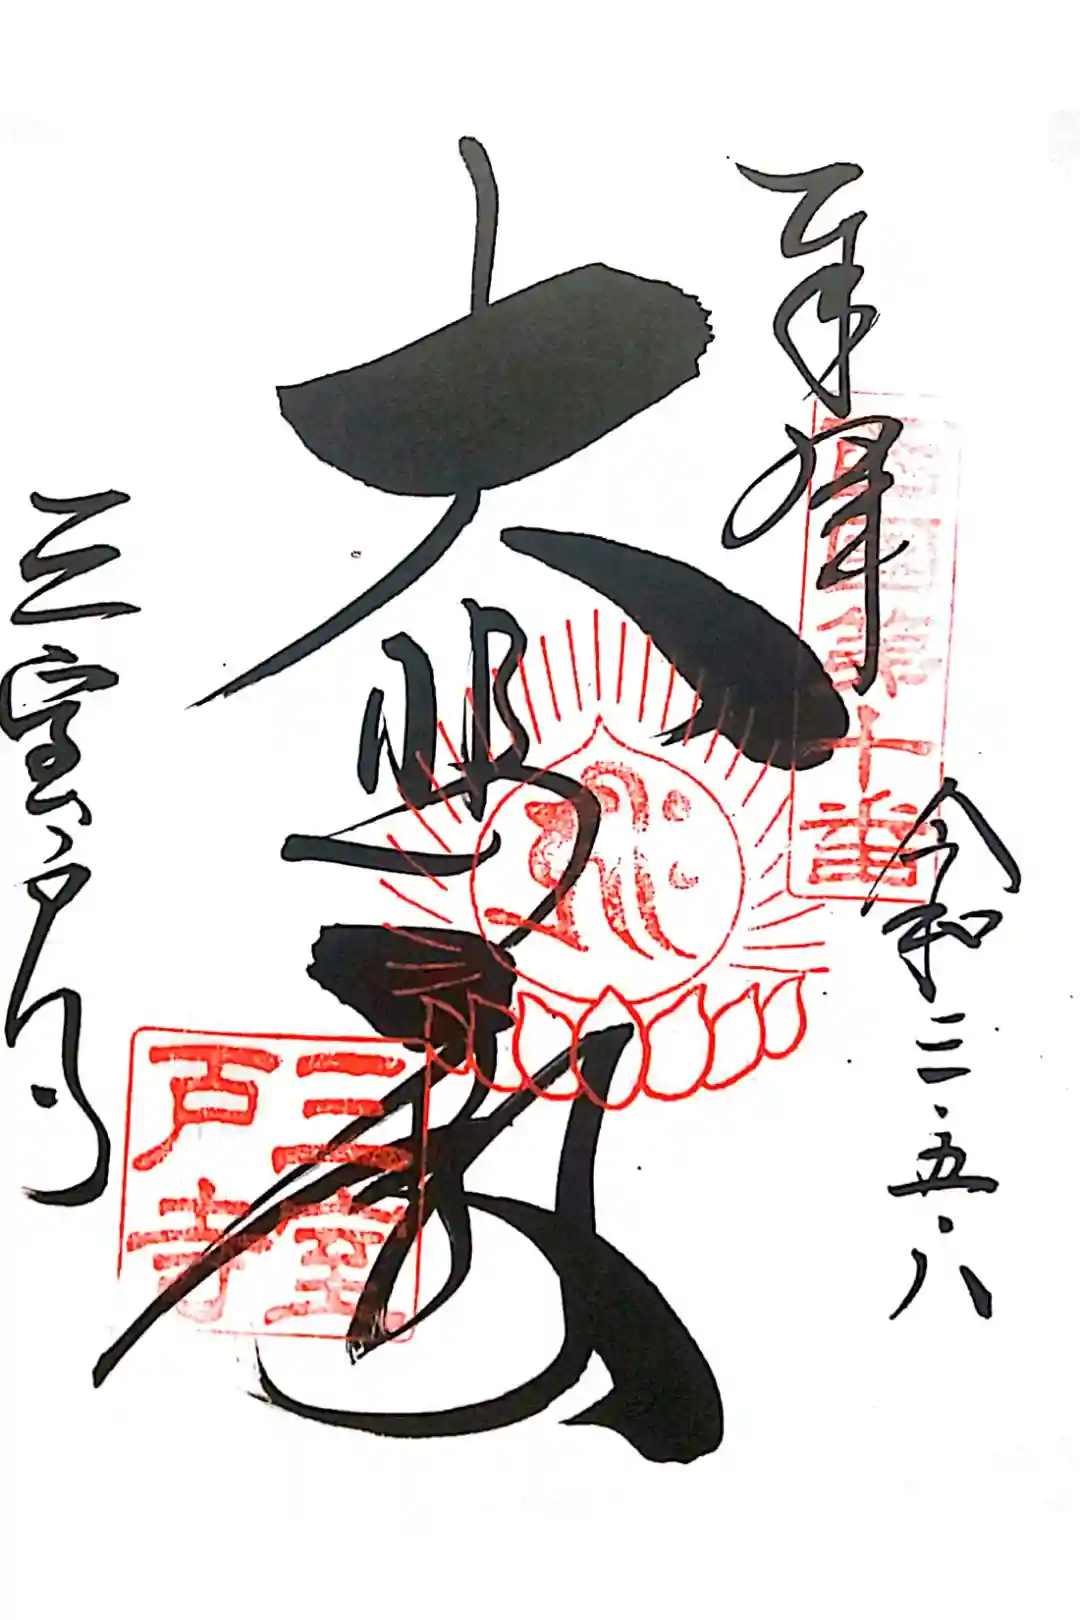 奉拝
西國第十番
令和三.五.八
大悲殿
三室戸寺
三室
戸寺